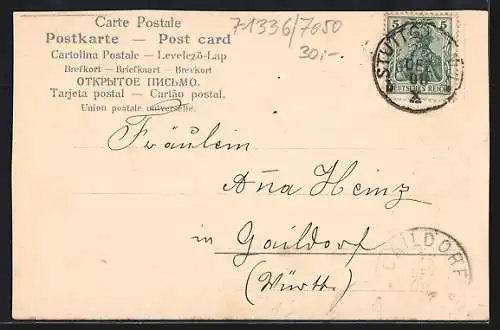 Carte Postale
Postkarte — Post card
Cartolina Postale — Levelező-Lap
Brefkort — Briefkaart — Brevkort
ОТКРЫТОЕ ПИСЬМО.
Tarjeta postal — Cartão postal.
Union postale universelle.
71336/7050
30,-
5 5
DEUTSCHES REICH
STUTTG
Fräulein
Anna Heinz
in Gaildorf
(Württ.)
GAILDORF